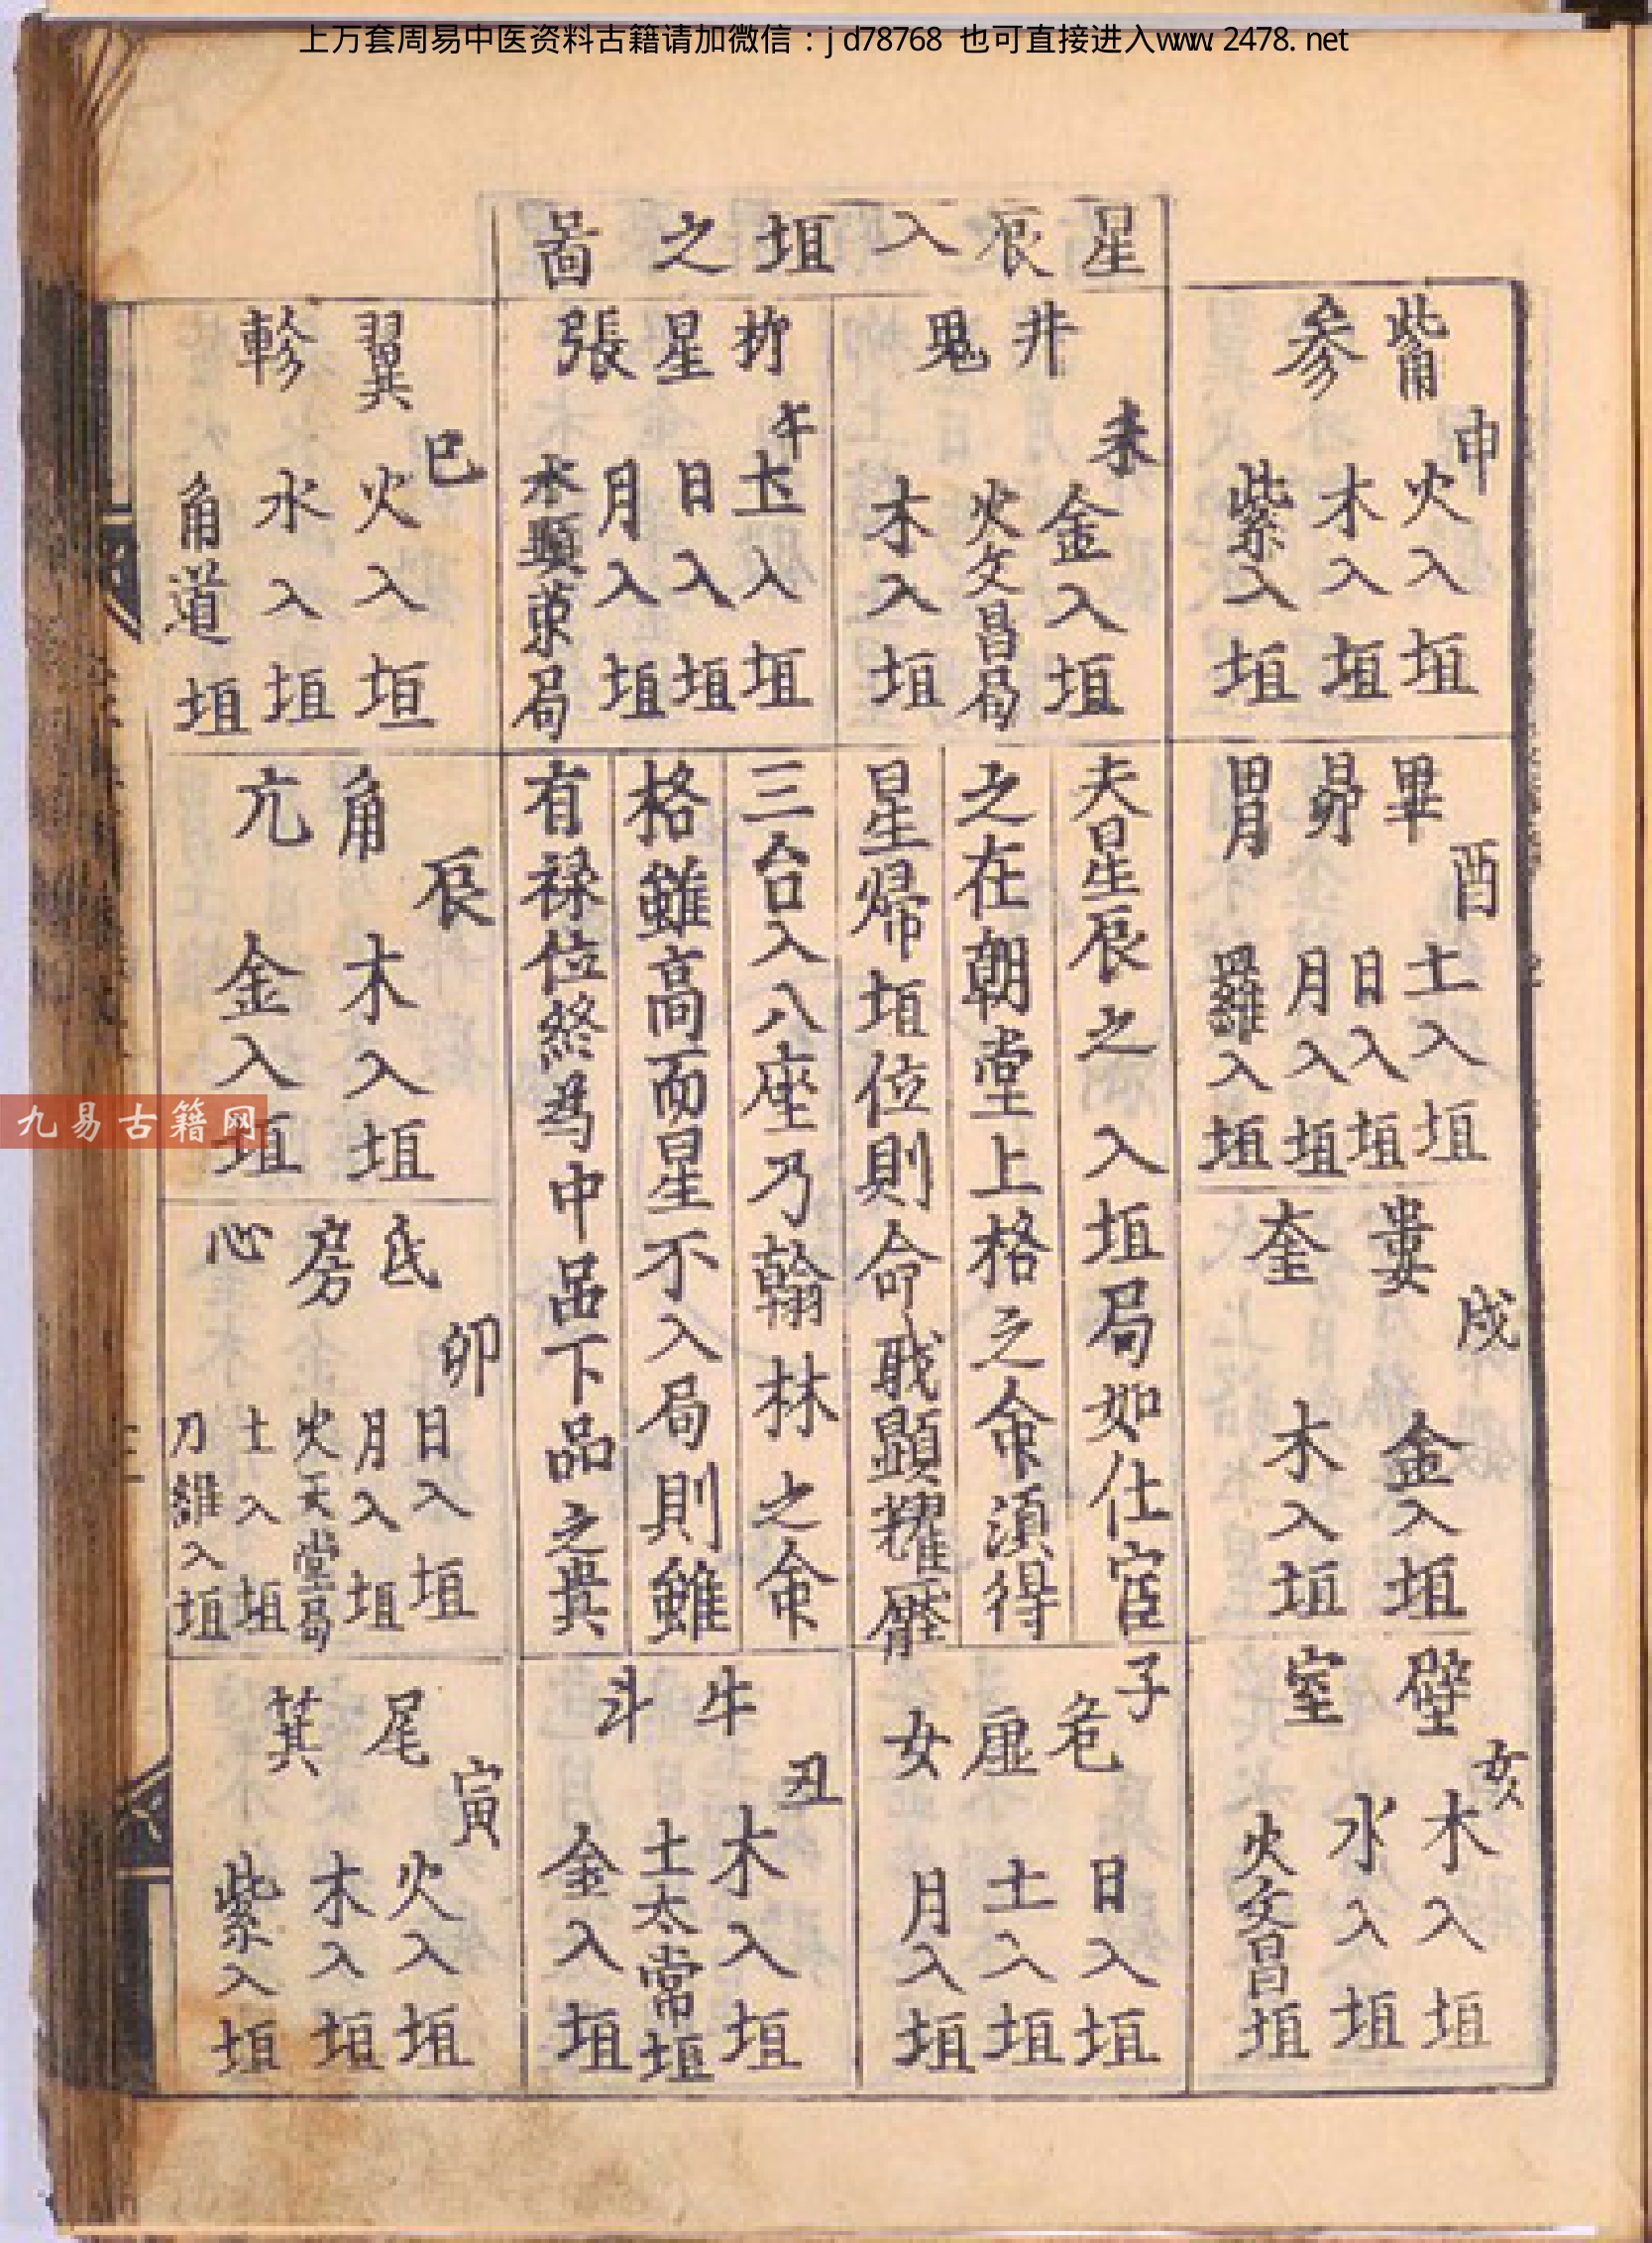 上万套周易中医资料古籍请加微信：jd78768 也可直接进入www.2478.net
星辰入垣之啚
觜參
申
火入垣
木入垣
紫入垣
井鬼
未
金入垣
火文昌局
木入垣
柳星張
午
土入垣
日入垣
月入垣
水顯慶局
翼軫
巳
火入垣
水入垣
角道垣
畢昴胃
酉
土入垣
日入垣
月入垣
羅入垣
夫星辰之入垣局如仕宦
之在朝堂上格之命須得
星帰垣位則命戝顕耀歴
三台入八座乃翰林之命
格雖高而星不入局則雖
有祿位終為中品下品之異
角亢
辰
木入垣
金入垣
婁奎
戌
金入垣
木入垣
氐房心
卯
日入垣
月入垣
火天堂局
土入垣
刀雖入垣
壁室
亥
木入垣
水入垣
火文昌垣
子
危虛女
日入垣
土入垣
月入垣
牛斗
丑
木入垣
土太常垣
金入垣
尾箕
寅
火入垣
木入垣
紫入垣
九易古籍网